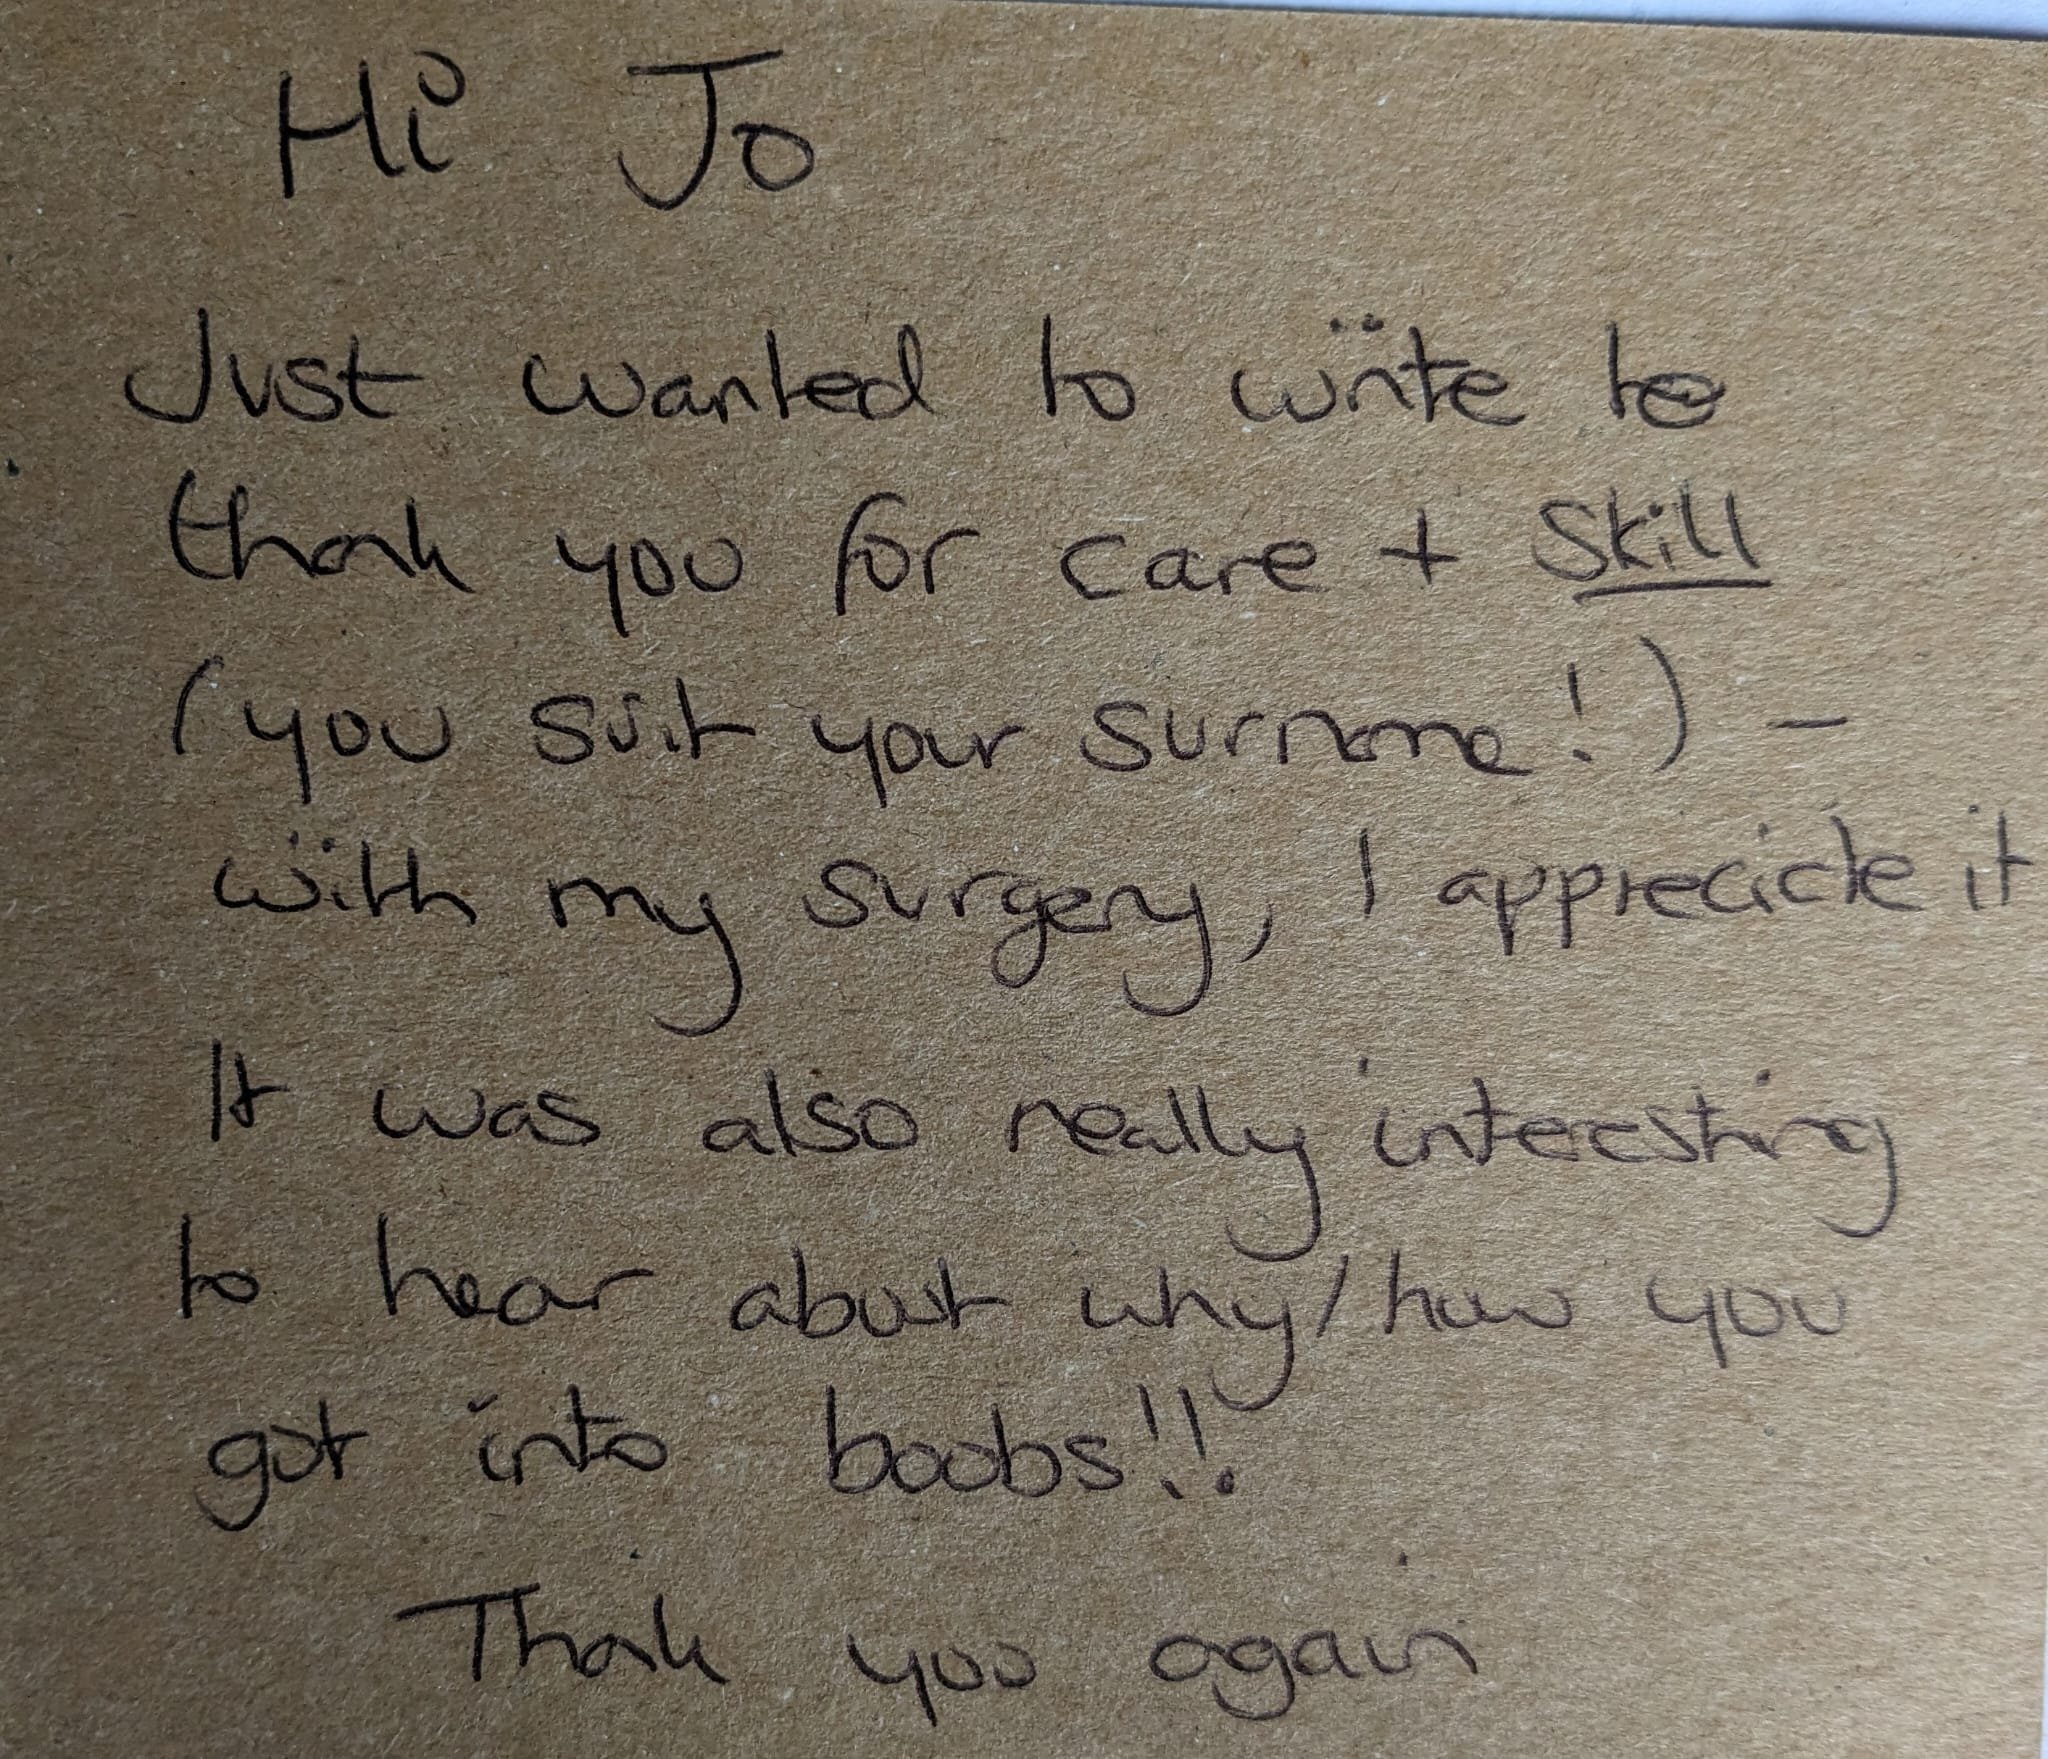 Hi Jo
Just wanted to write to
thank you for care + skill
(you suit your surname!) -
with my surgery, I appreciate it
It was also really interesting
to hear about why/how you
got into boobs!!
Thank you again